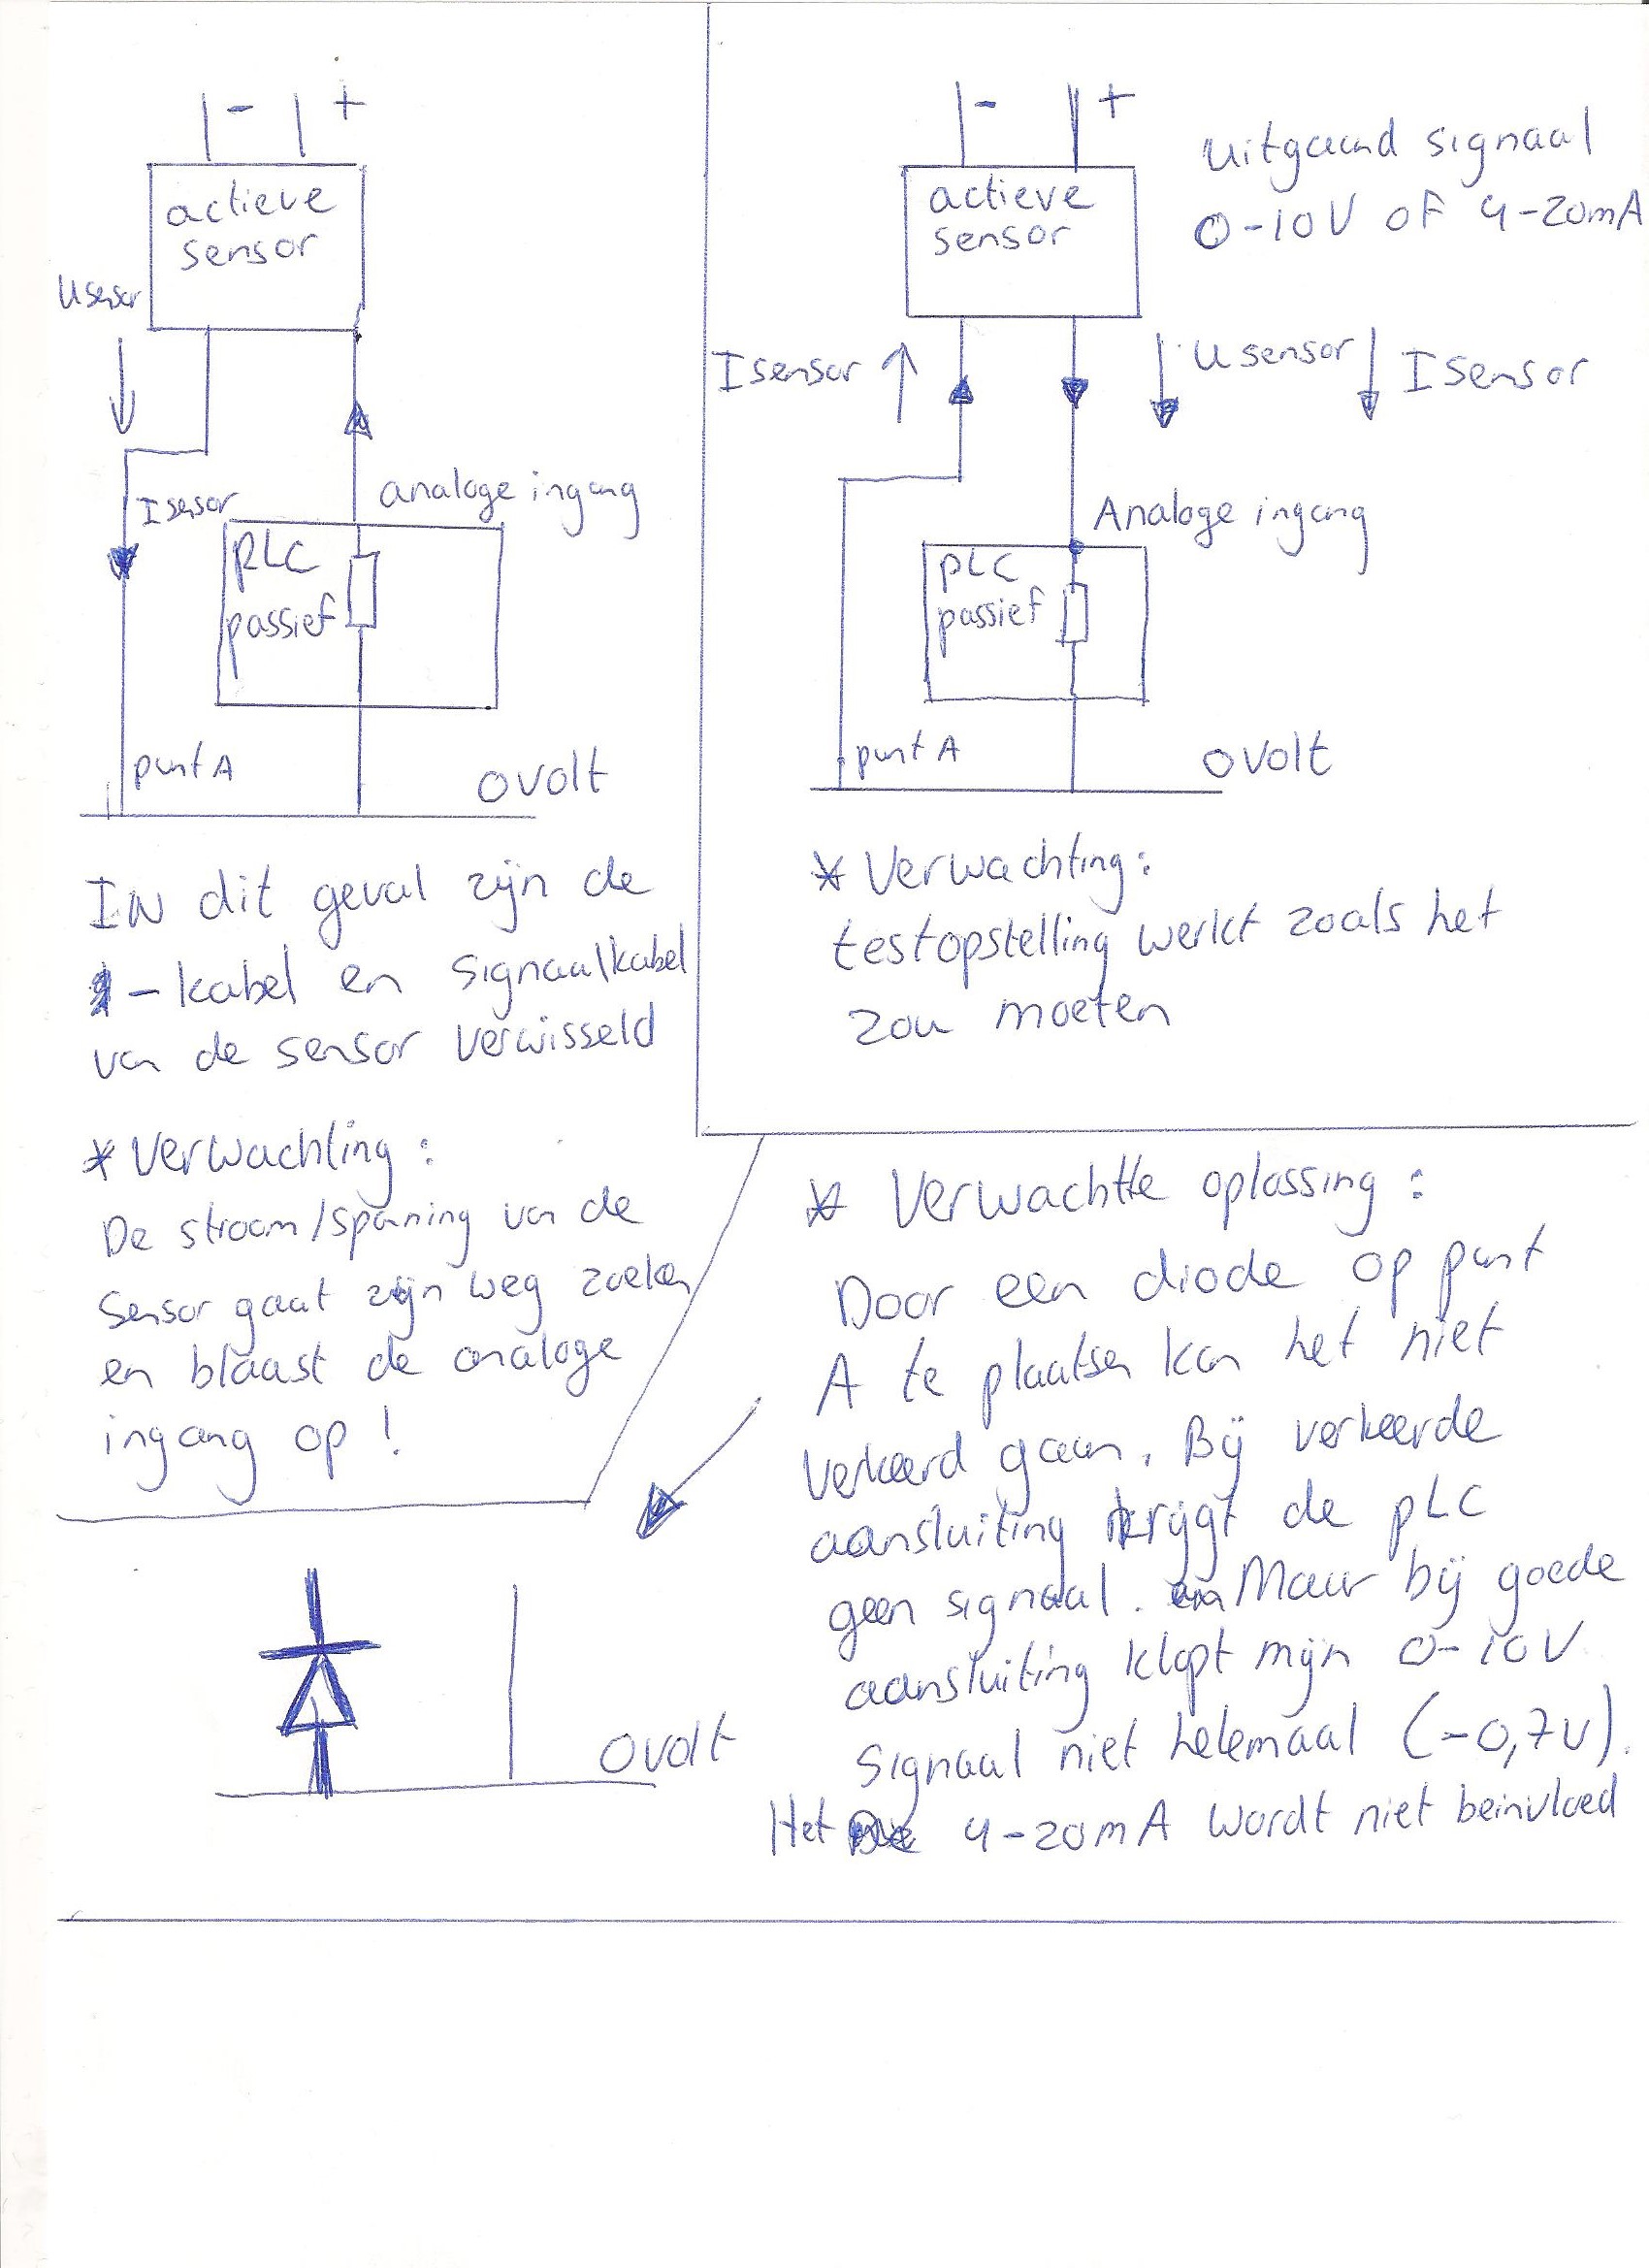 - +
actieve
sensor
U sensor
I sensor
analoge ingang
PLC
passief
punt A
0 volt
IN dit geval zijn de
- kabel en signaalkabel
van de sensor verwisseld
* Verwachting:
De stroom/spanning van de
sensor gaat zijn weg zoeken
en blaast de analoge
ingang op!
- +
actieve
sensor
uitgaand signaal
0-10V OF 4-20mA
I sensor
U sensor
I sensor
Analoge ingang
PLC
passief
punt A
0 volt
* Verwachting:
testopstelling werkt zoals het
zou moeten
* Verwachtte oplossing:
Door een diode op punt
A te plaatsen kan het niet
verkeerd gaan. Bij verkeerde
aansluiting krijgt de PLC
geen signaal. Maar bij goede
aansluiting klopt mijn 0-10V
signaal niet helemaal (-0,7V).
Het 4-20mA wordt niet beinvloed
0 volt